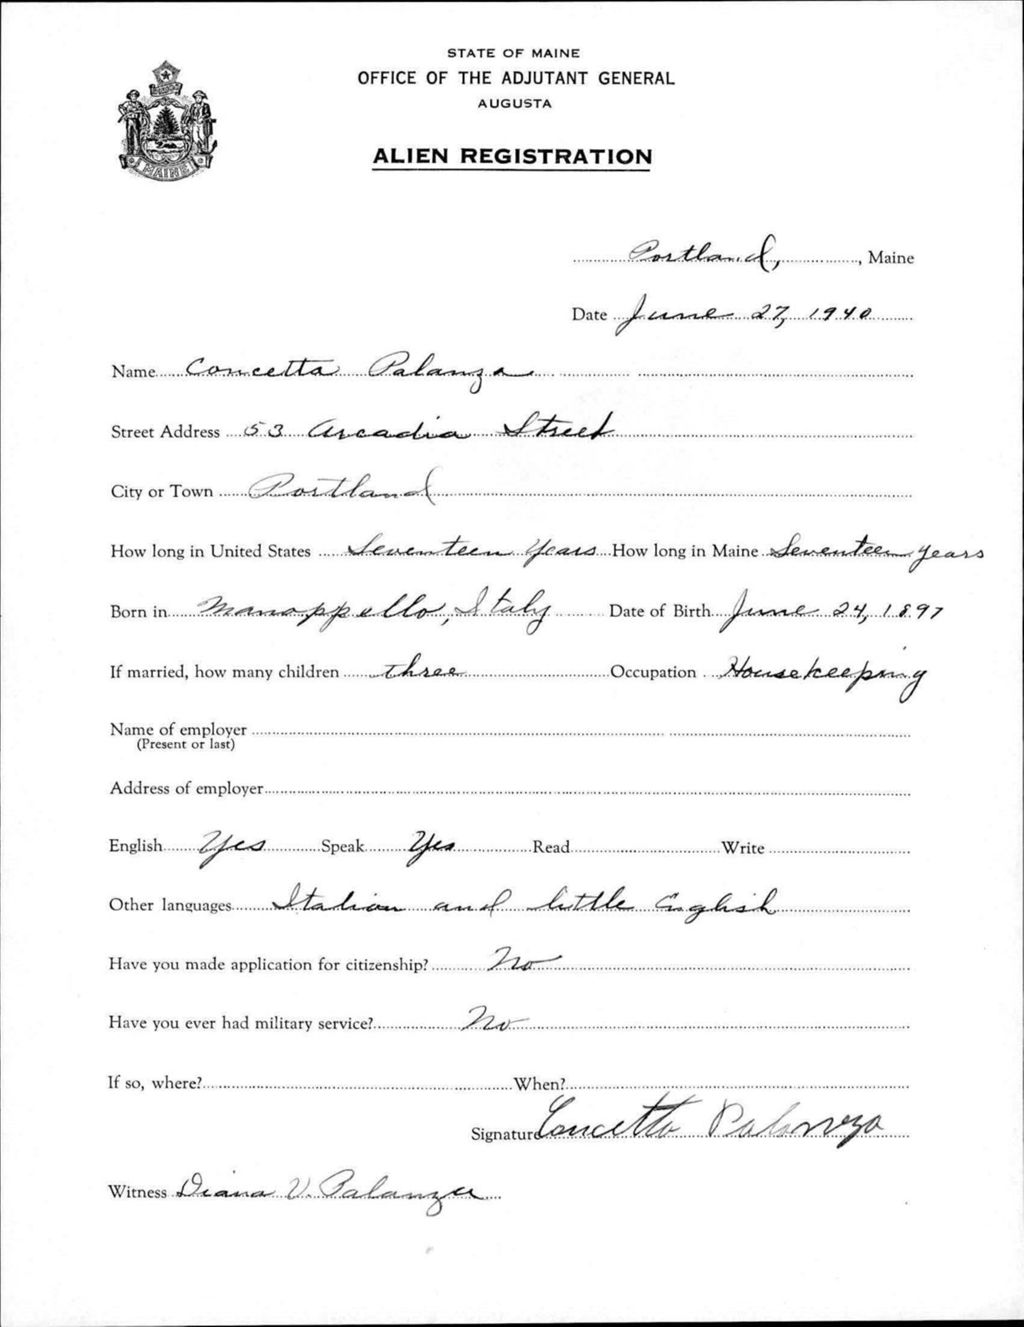 STATE OF MAINE
OFFICE OF THE ADJUTANT GENERAL
AUGUSTA
ALIEN REGISTRATION
MAINE
Portland, , Maine
Date June 27, 1940
Name Concetta Palanza
Street Address 53 Arcadia Street
City or Town Portland
How long in United States Seventeen Years How long in Maine Seventeen years
Born in Manoppello, Italy Date of Birth June 24, 1897
If married, how many children three Occupation Housekeeping
Name of employer
(Present or last)
Address of employer
English Yes Speak Yes Read Write
Other languages Italian and little English
Have you made application for citizenship? No
Have you ever had military service? No
If so, where? When?
Signature Concetta Palanza
Witness Diana V. Palanza